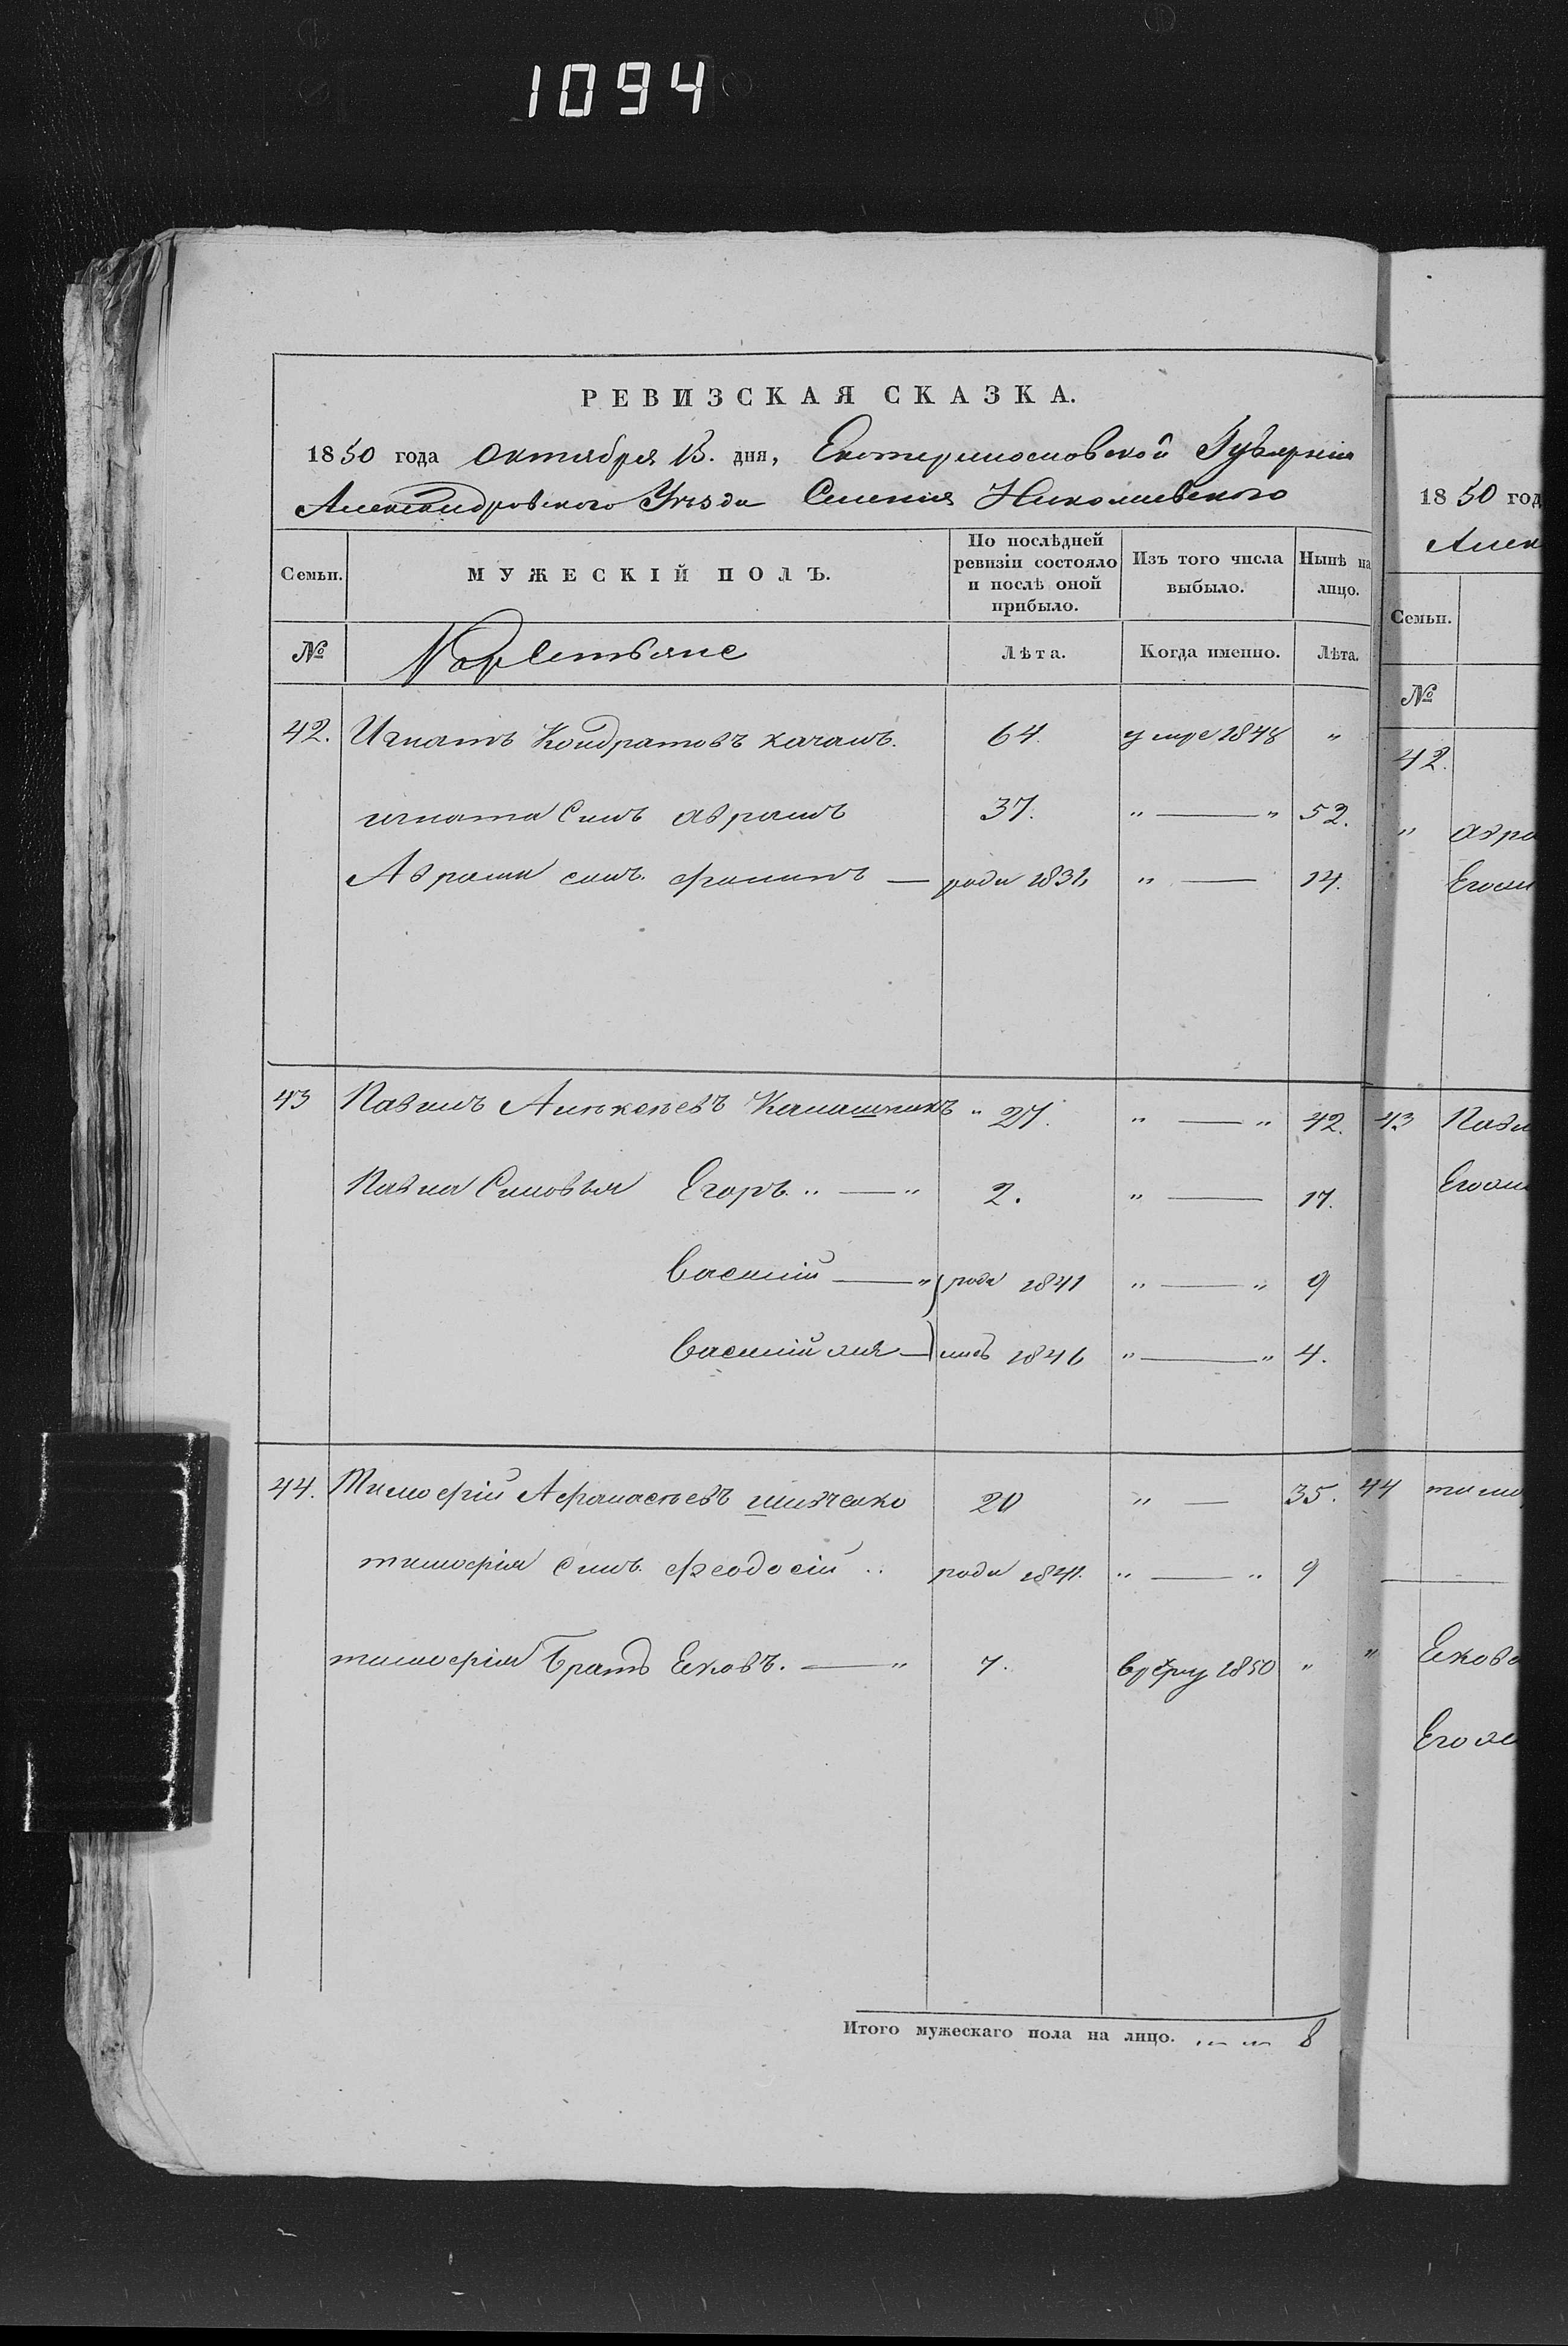 1094
РЕВИЗСКАЯ СКАЗКА.
1850 года Октября 13. дня, Екатеринославской Губерніи
Александровскаго Уѣзда Селенія Николаевского
Семьи. МУЖЕСКІЙ ПОЛЪ. По послѣдней ревизіи состояло и послѣ оной прибыло. Изъ того числа выбыло. Нынѣ на лицо.
№ Лѣта. Когда именно. Лѣта.
42. Игнатъ Кондратовъ качанъ. 64. умре 1848 „
игната Синъ аврамъ 37. „ — „ 52.
Аврама синъ. — роди „ — 14.
43 Павилъ Алѣксѣевъ „ 27. „ — „ 42.
Павла Синовья Егоръ. „ — „ 2. „ — 17.
Василій — „ роди 1841 „ — „ 9
Василій — лись 1846 „ — „ 4.
44. Тимофій Афанасѣевъ шивченко 20 „ — 35.
тимофія Синъ. феодосій .. роди 1841. „ — „ 9
тимофія братъ Ековъ. — „ 7. 1850 „
Итого мужескаго пола на лицо. 8
1850 год
Алек
Семьи.
№
42.
„ авра
Его
43 Павл
Его
44 тимо
„ Еков
Его